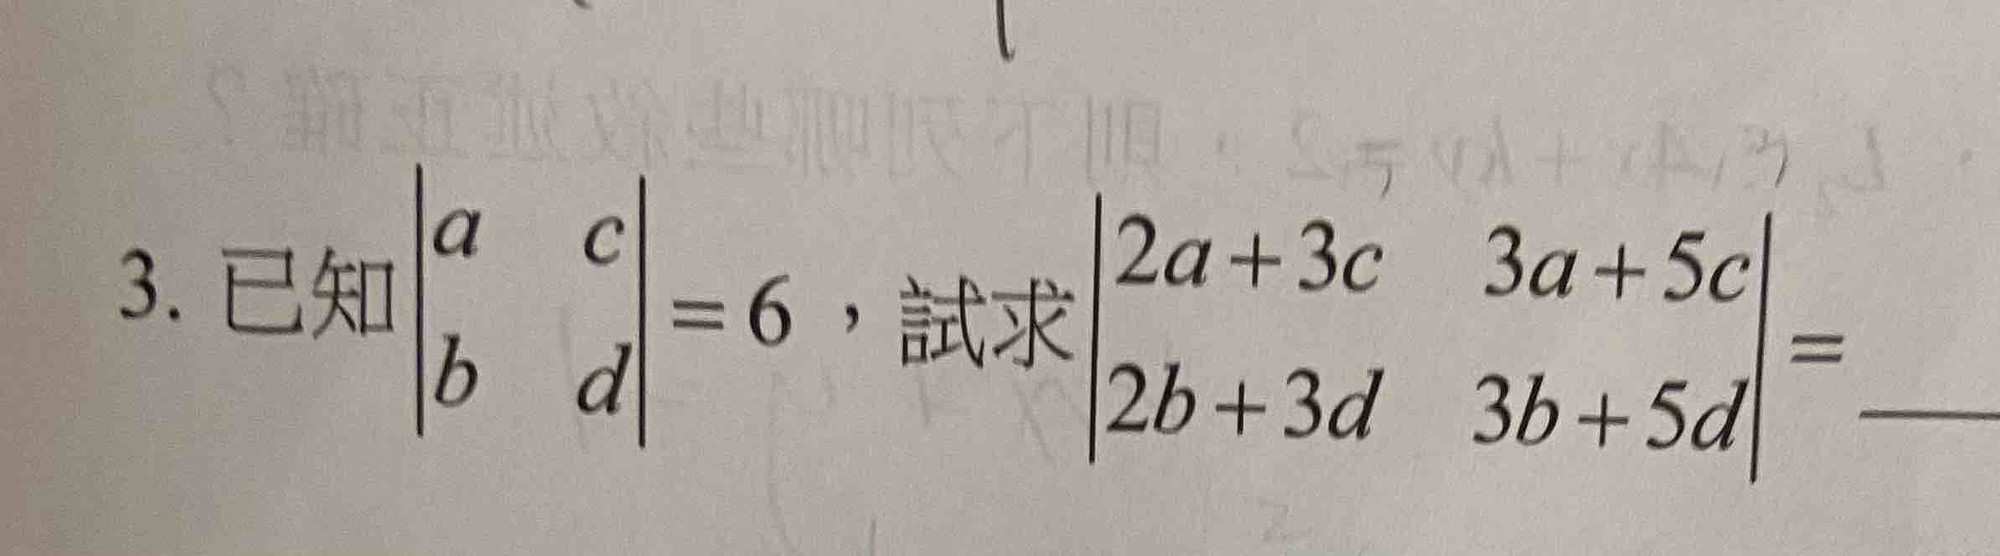 3. 已知 |a c; b d| = 6，試求 |2a+3c 3a+5c; 2b+3d 3b+5d| = ____